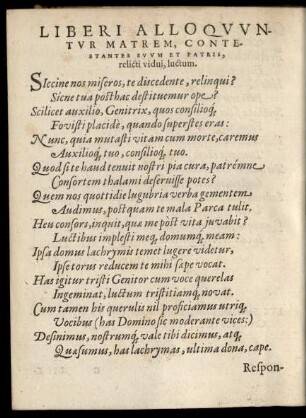 LIBERI ALLOQVVN-
TVR MATREM, CONTE-
STANTES SVVM ET PATRIS,
relicti vidui, luctum.
SIccine nos miseros, te discedente, relinqui?
Sicne tua posthac destituemur ope?
Scilicet auxilio, Genitrix, quos consilioq́,
Fovisti placidè, quando superstes eras:
Nunc, quia mutasti vitam cum morte, caremus
Auxilioq́ tuo, consilioq́, tuo.
Quod si te haud tenuit nostri pia cura, patrémne
Consortem thalami deseruisse potes?
Quem nos quottidie lugubria verba gementem
Audimus, postquam te mala Parca tulit.
Heu consors, inquit, quæ me post vita juvabit?
Luctibus implesti meq́, domumq́, meam:
Ipsa domus lachrymis temet lugere videtur,
Ipse torus reducem te mihi sæpe vocat.
Has igitur tristi Genitor cum voce querelas
Ingeminat, luctum tristitiamq́, novat.
Cum tamen his querulis nil proficiamus utriq́,
Vocibus (has Domino sic moderante vices:)
Desinimus, nostrumq́, vale tibi dicimus, atq́,
Quæsumus, has lachrymas, ultima dona, cape.
Respon-